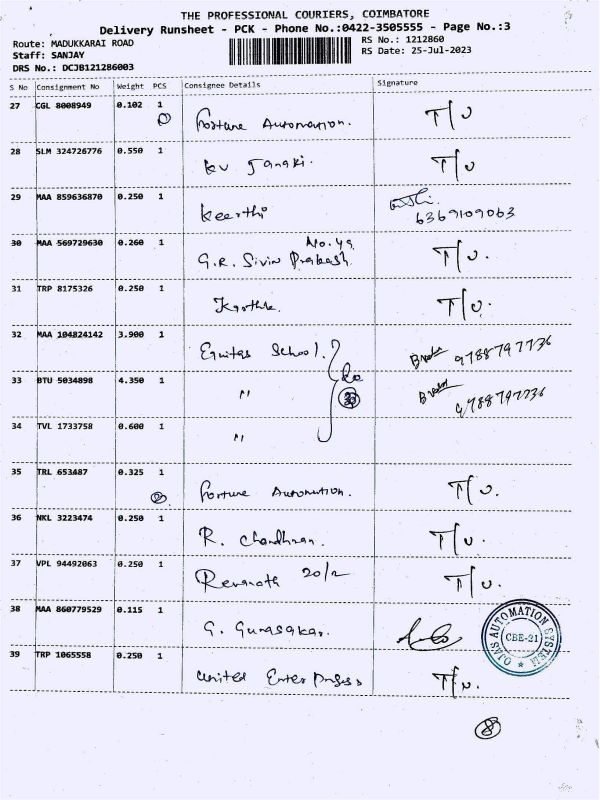 THE PROFESSIONAL COURIERS, COIMBATORE
Delivery Runsheet - PCK - Phone No.:0422-3505555 - Page No.:3
Route: MADUKKARAI ROAD RS No.: 1212860
Staff: SANJAY RS Date: 25-Jul-2023
DRS No.: DCJB121286003
S No Consignment No Weight PCS Consignee Details Signature
27 CGL 8008949 0.102 1 Fortune Automation. T/U
28 SLM 324726776 0.550 1 KV Janaki. T/U
29 MAA 859636870 0.250 1 Keerthi
6369109063
30 MAA 569729630 0.260 1 No. 49
G.R. Sivin Prakash T/U.
31 TRP 8175326 0.250 1 Karthik T/U.
32 MAA 104824142 3.900 1 Equitas School. 9788797736
33 BTU 5034898 4.350 1 " 9788797736
34 TVL 1733758 0.600 1 "
35 TRL 653487 0.325 1 Fortune Automation. T/U.
36 NKL 3223474 0.250 1 R. Chandhran. T/U.
37 VPL 94492063 0.250 1 Revanath 20/2 T/U.
38 MAA 860779529 0.115 1 G. Gunasakar.
OJAS AUTOMATION SYSTEM
CBE-21
39 TRP 1065558 0.250 1 United Enterprises T/U.
8